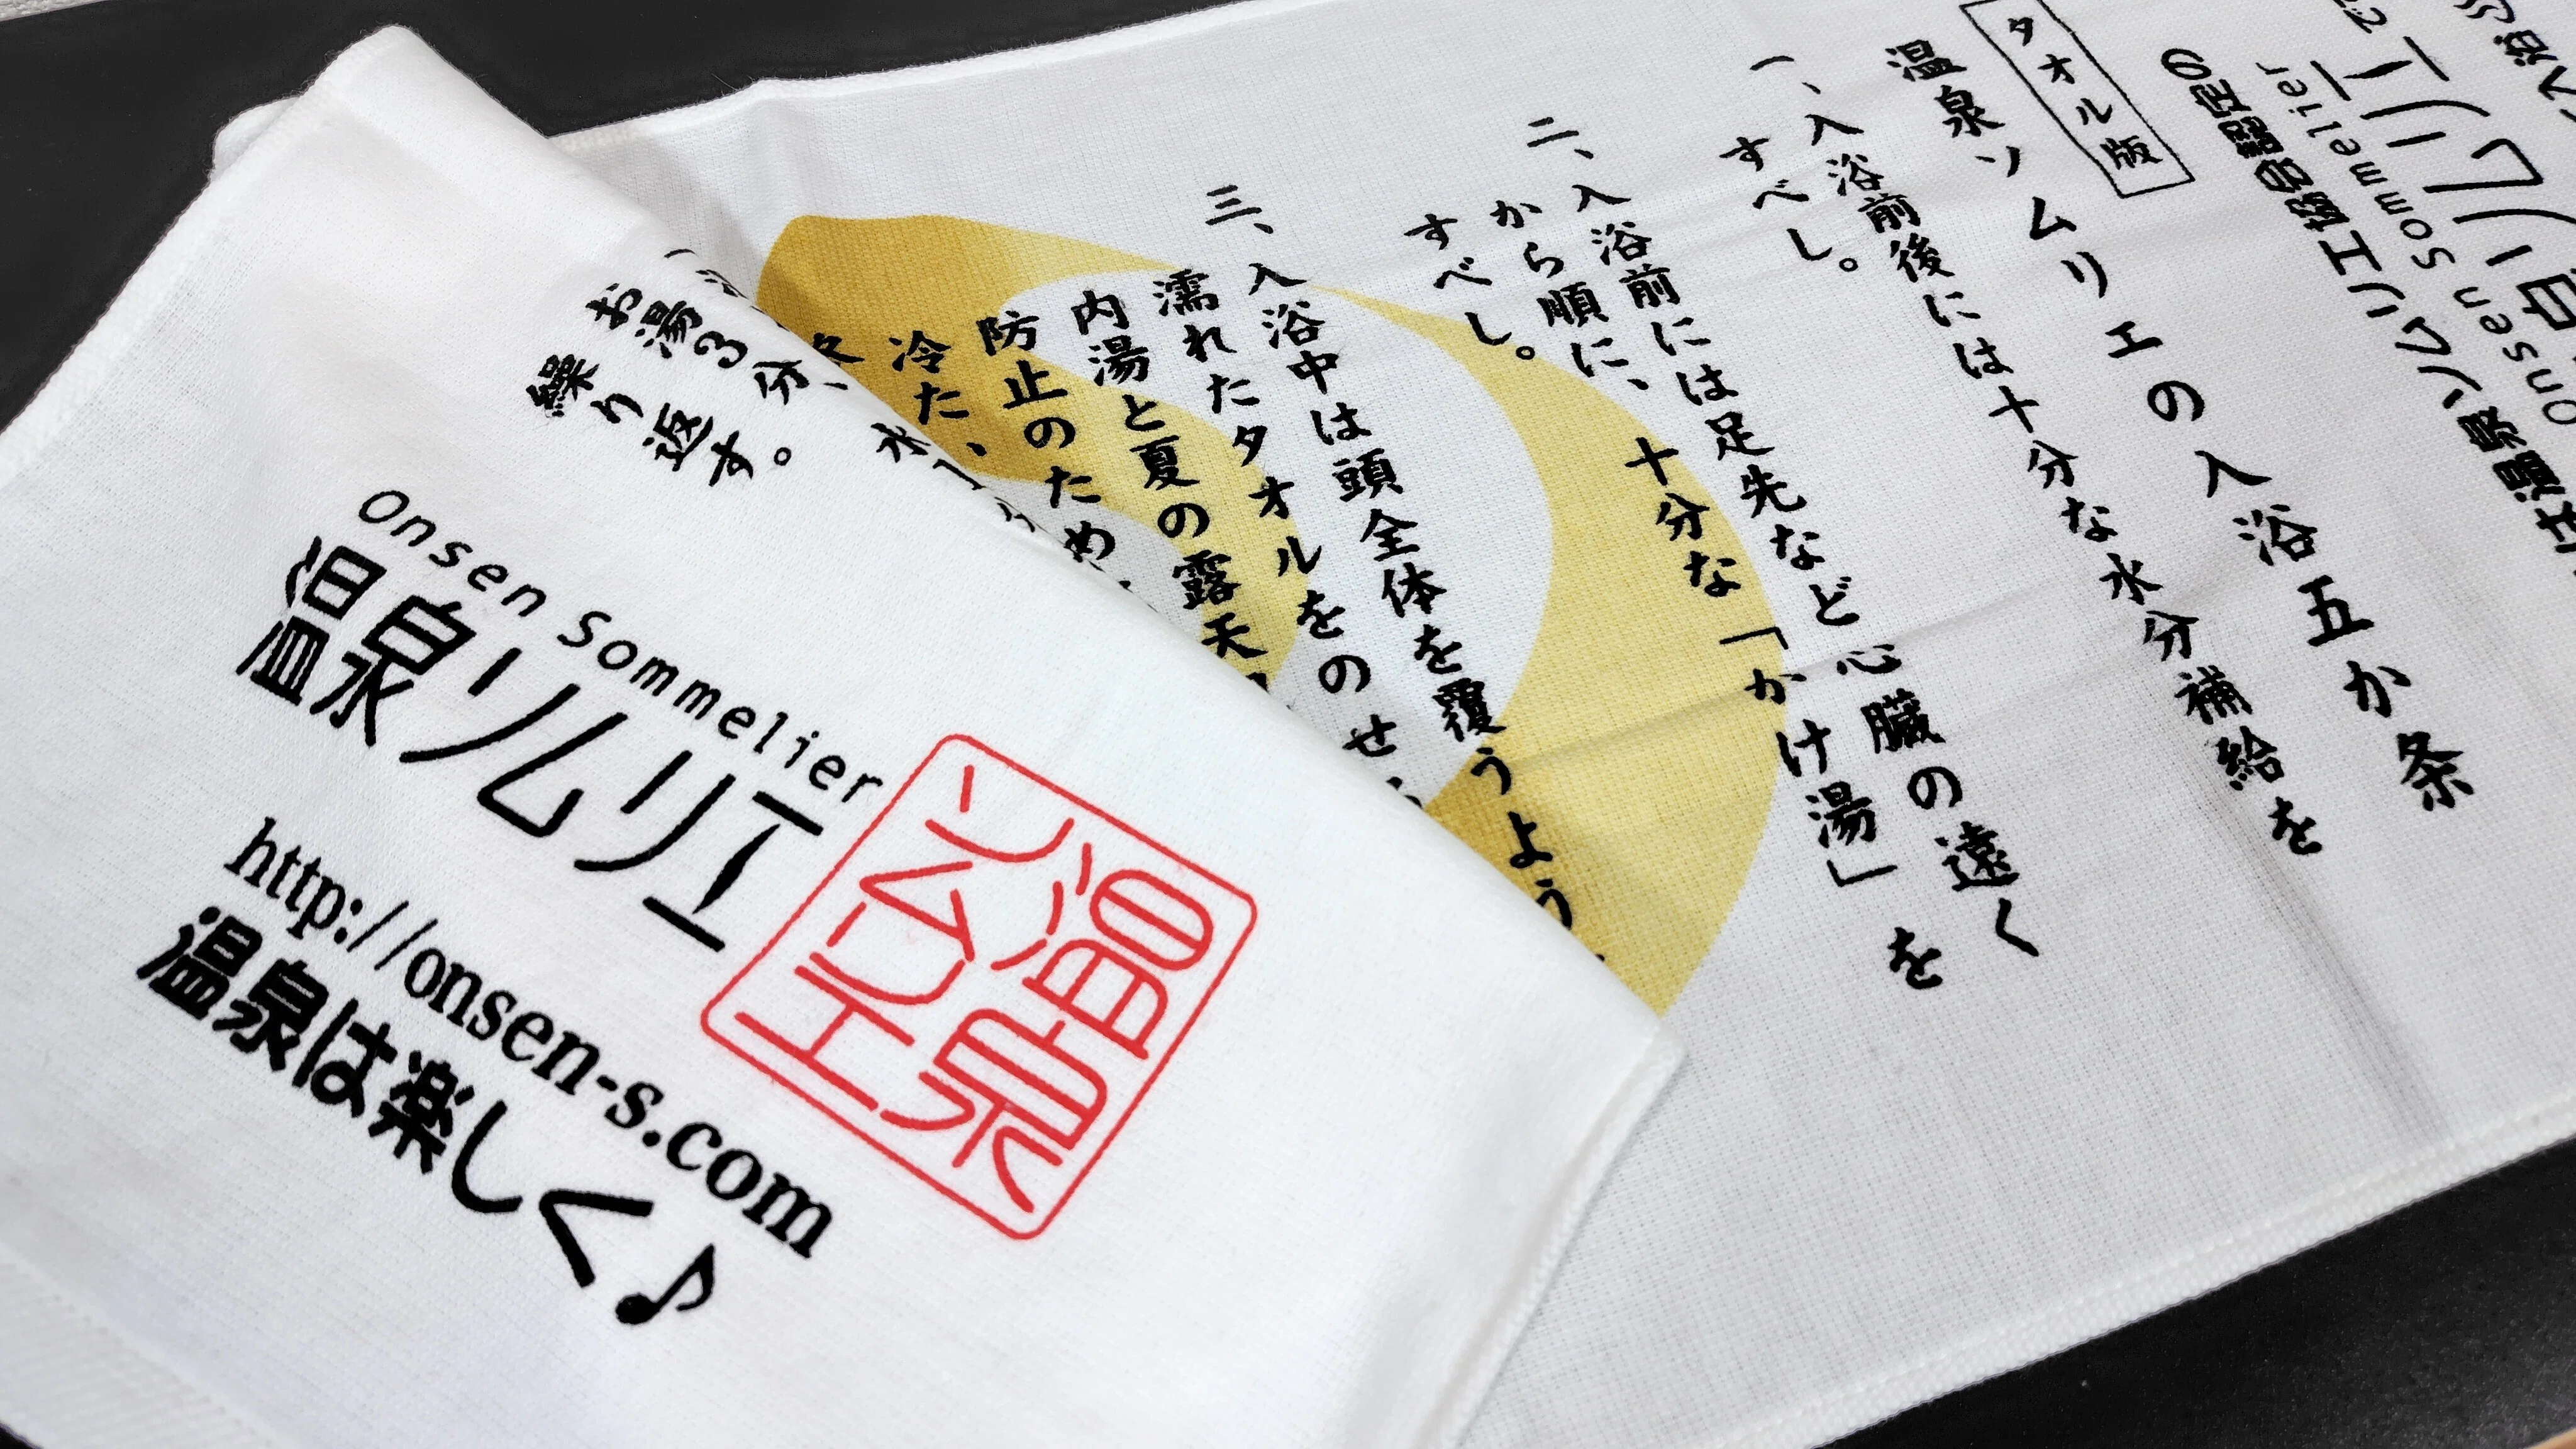 タオル版
温泉ソムリエの入浴五か条
一、入浴前後には十分な水分補給を
すべし。
二、入浴前には足先など心臓の遠く
から順に、十分な「かけ湯」を
すべし。
三、入浴中は頭全体を覆うよう
濡れたタオルをのせ
内湯と夏の露天
防止のため
冷た
お湯3分、水1
繰り返す。
Onsen Sommelier
温泉ソムリエ
http://onsen-s.com
温泉は楽しく♪
温泉
ソムリエ
温泉ソムリエ協会認定の
Onsen Sommelier